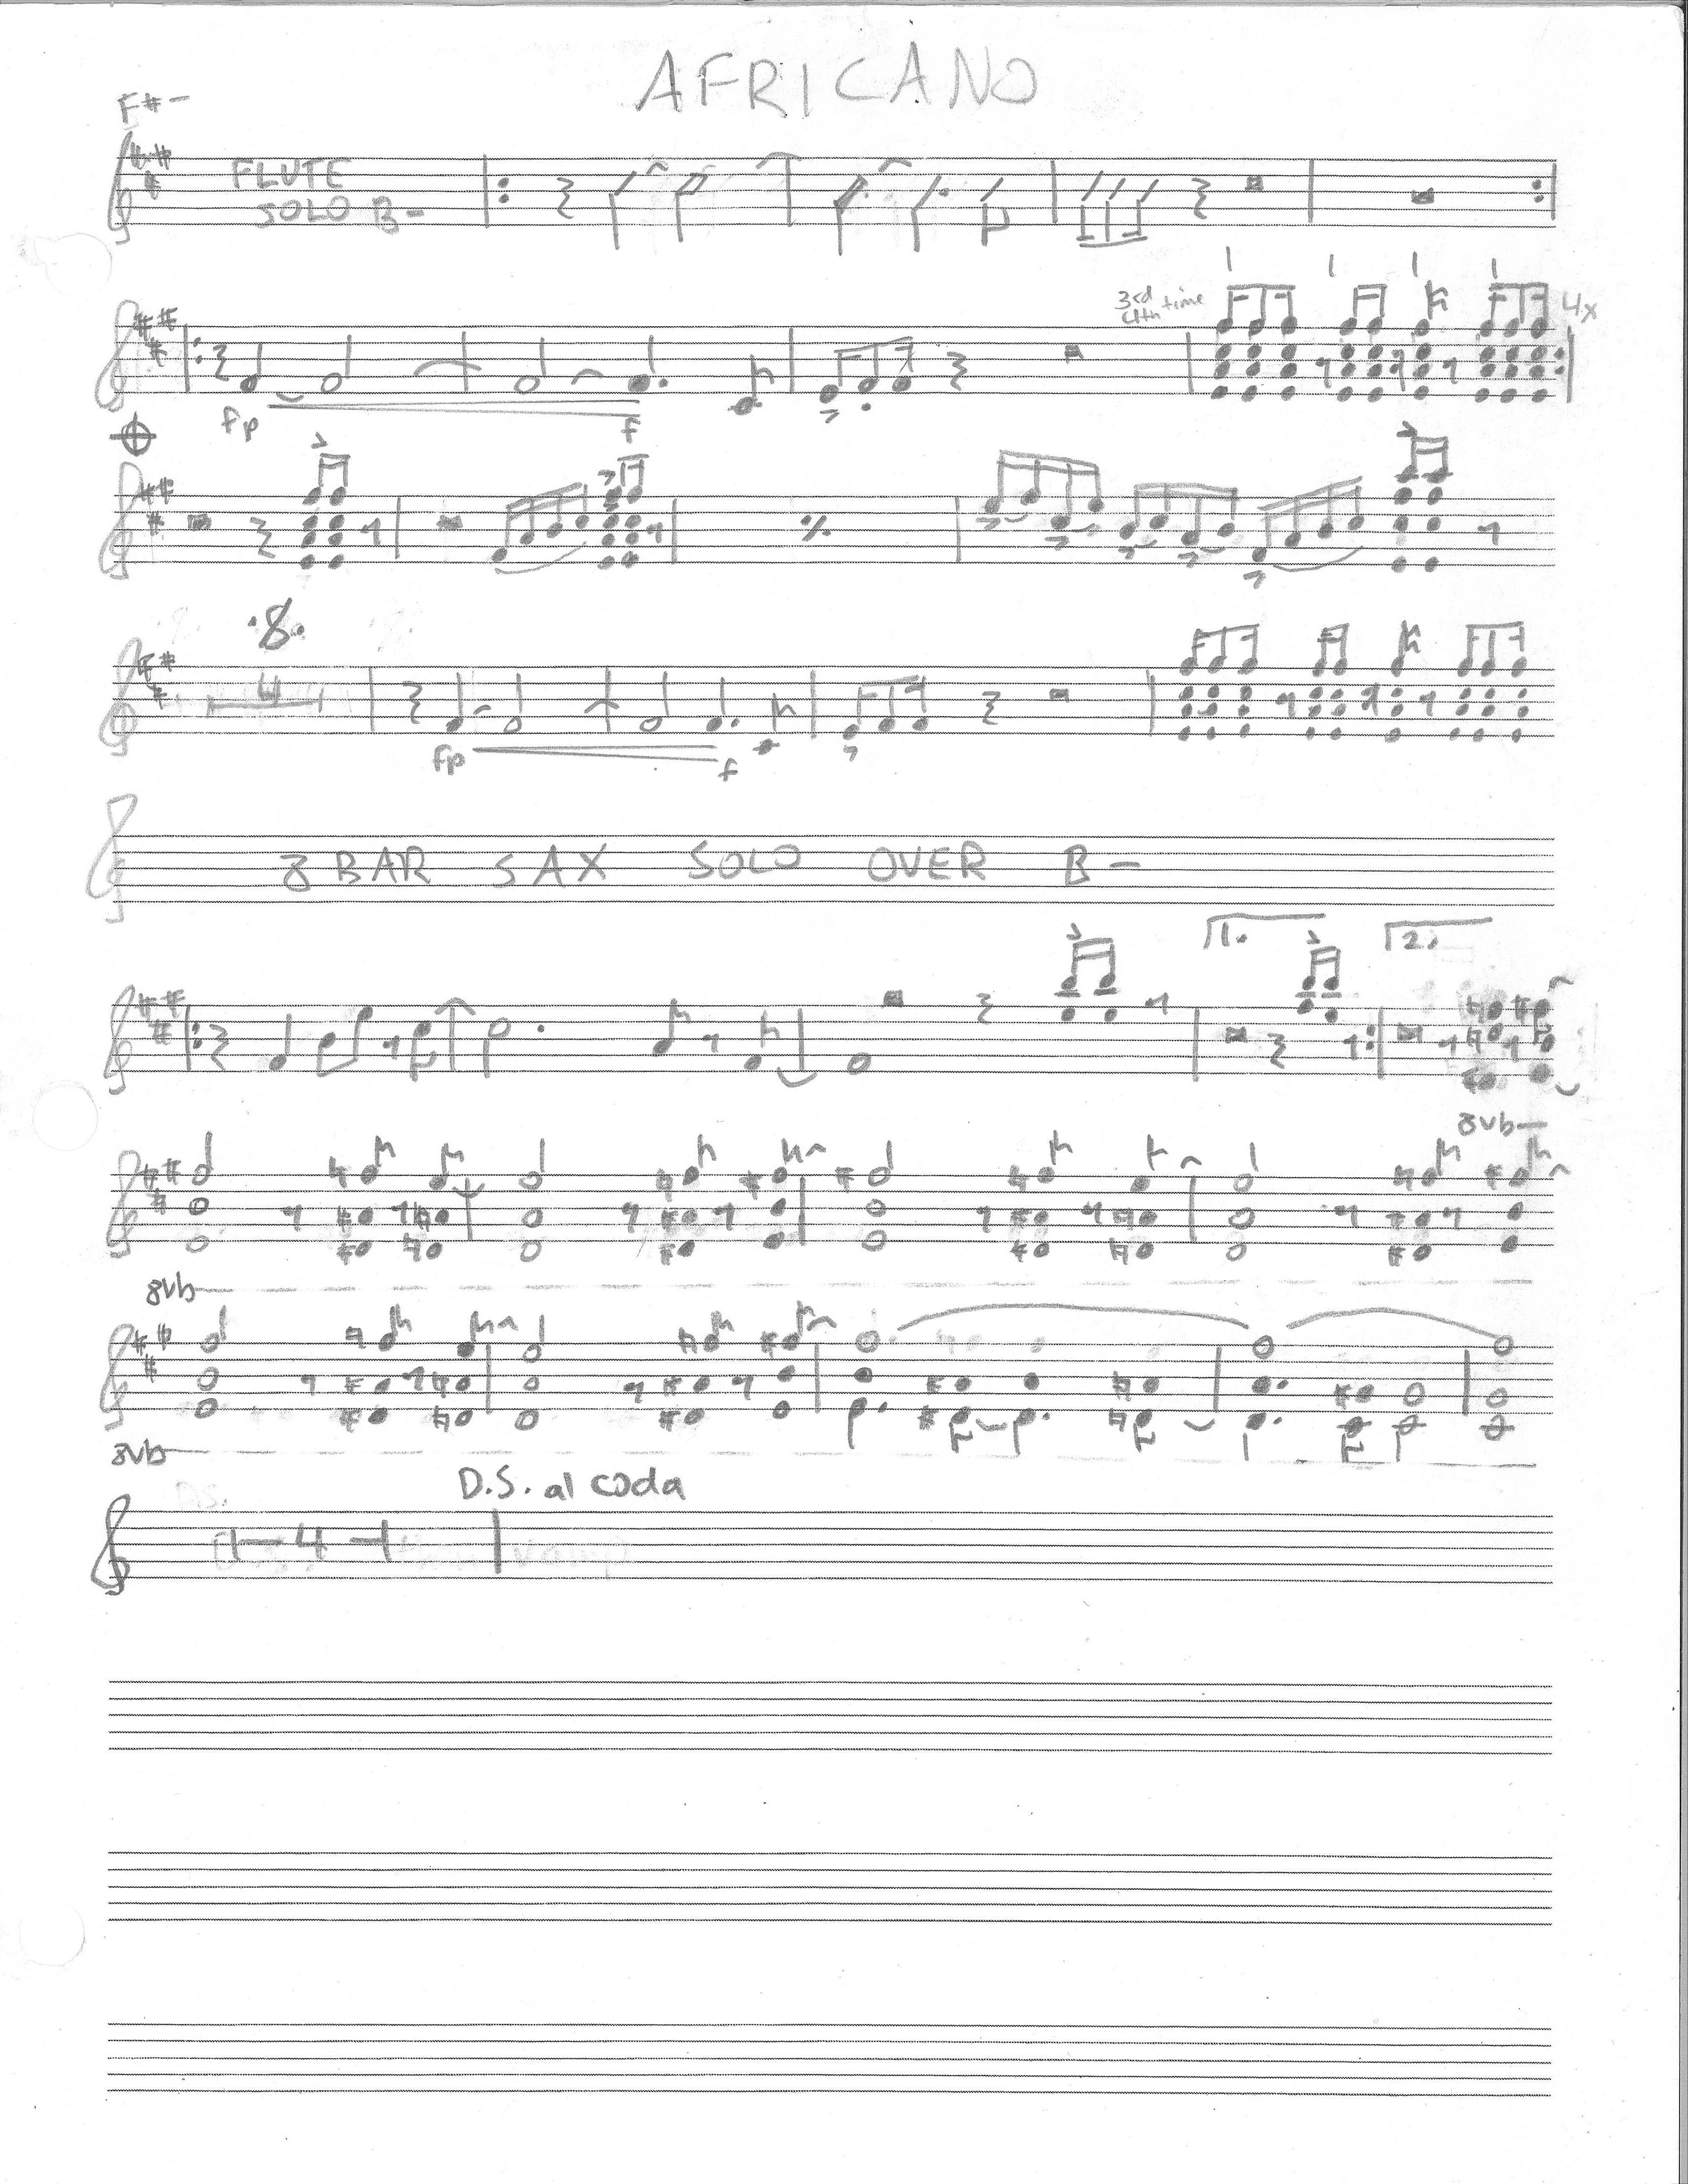 AFRICANO
F#-
FLUTE
SOLO B-
3rd
4th time
4x
fp f
4
fp f
8 BAR SAX SOLO OVER B-
1. 2.
8vb
8vb
8vb
D.S. al coda
4